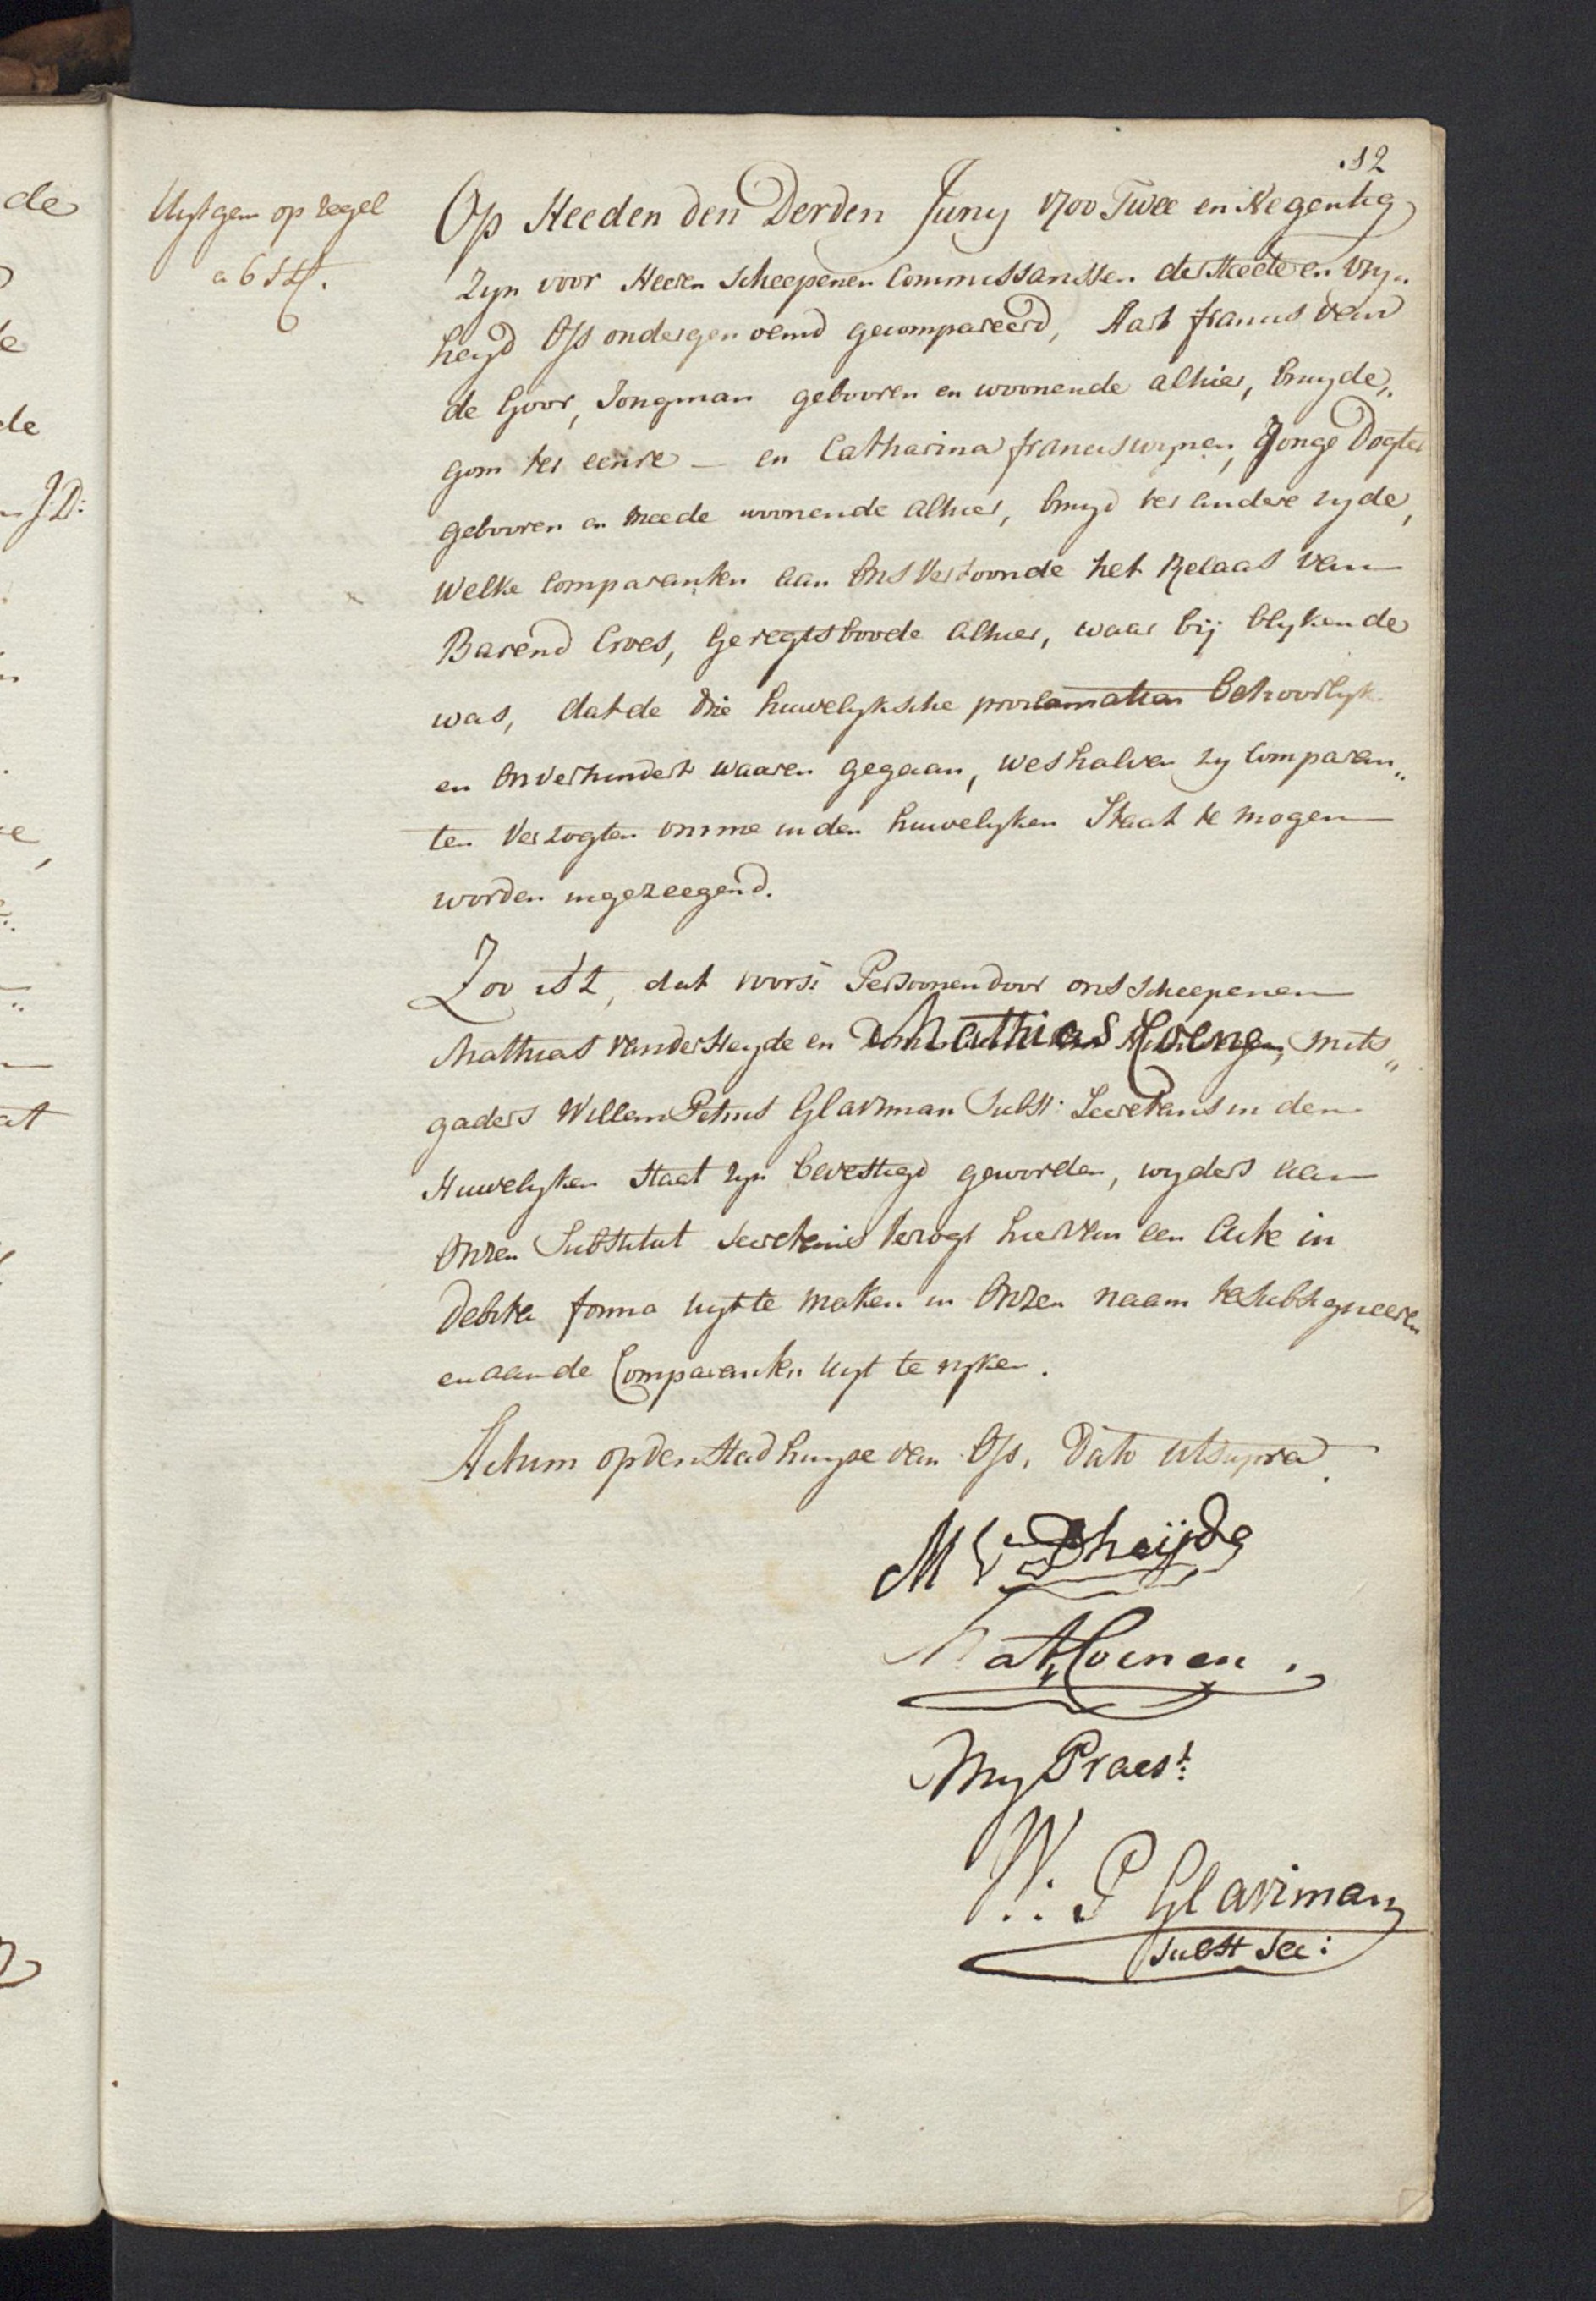 12
Uyt gem op zegel
a 6 St.
Op Heeden den Derden Juny 1700 Twee en Negentig
Zyn voor Heeren Scheepenen Commissarissen der Steede en Vry„
heyd Oss ondergenoemd gecompareerd, Aart francis van
de Goor, Jongman gebooren en woonende alhier, bruyde„
gom ter eenre — en Catharina francis wynen, Jonge Dogter
gebooren en meede woonende alhier, bruyd ter andere zyde,
Welke Comparanten aan Ons Vertoonde het Relaas van
Barend Croes, Geregtsboode alhier, waar bij blykende
was, dat de drie huwelyksche proclamatien behoorlyk
en Onverhindert waaren gegaan, weshalven zy Comparan„
ten Verzogten omme in den huwelyken Staat te mogen
worden ingezeegend.
Zoo ist, dat voors: Persoonen door ons Scheepenen
Mathias van der Heyde en Mathias Coenen, mits„
gaders Willem Petrus Glaviman Subst: Secretaris in den
Huwelyken Staat zyn bevestigd geworden, wyders aan
Onzen Substitut Secretaris verzogt hier van een Acte in
debita forma uyt te maken in Onzen naam te subsigneeren
en aan de Comparanten uyt te ryken.
Actum op den Stadhuyse van Oss, Dato Utsupra.
M V Dheijde
Mat Coenen.
My Praest:
W: P Glaviman
Subst Sec:
de
de
J:D: